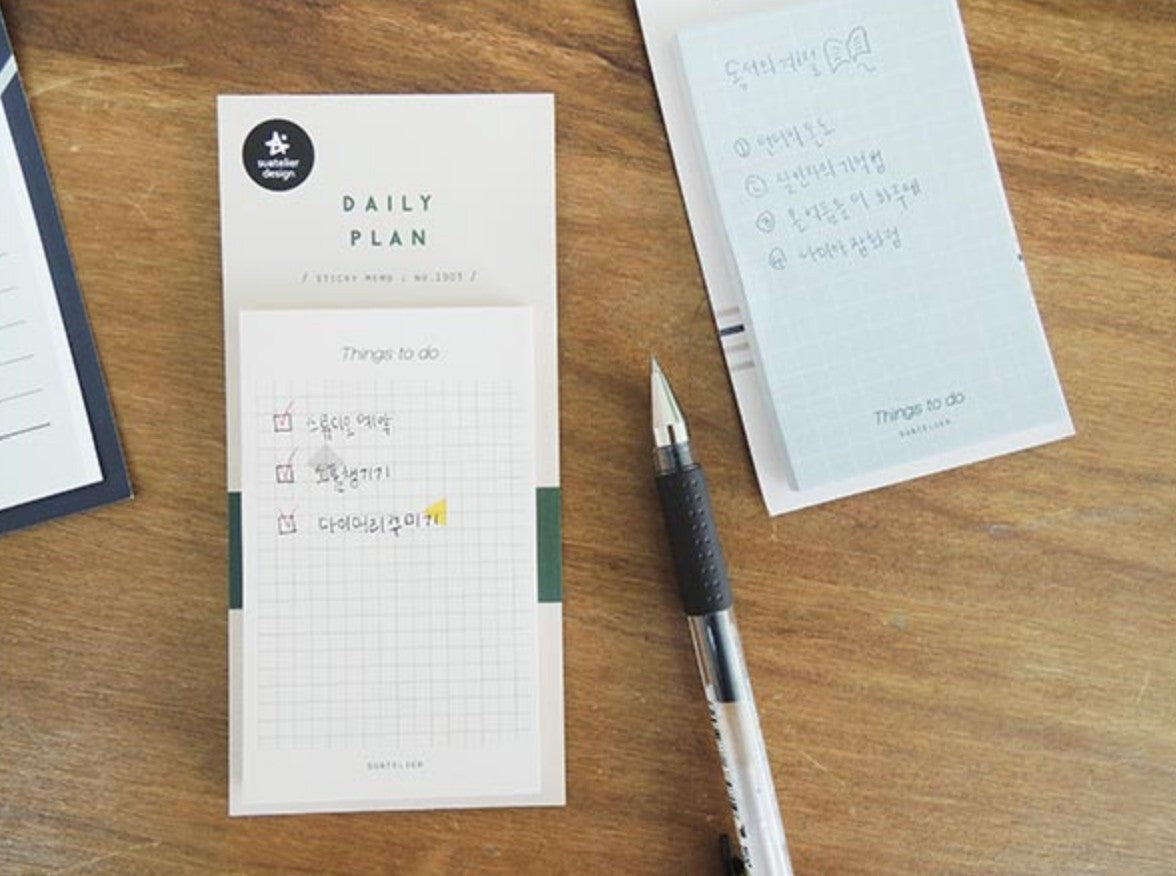 suatelier
design
DAILY
PLAN
/ STICKY MEMO : NO.1903 /
Things to do
스튜디오 예약
소품챙기기
다이어리꾸미기
SUATELIER
독서의 계절
① 언어의 온도
② 살인자의 기억법
③ 온 이
④ 나미야 잡화점
Things to do
SUATELIER